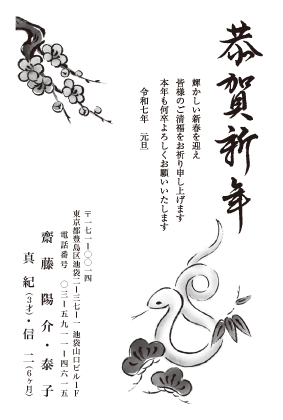 恭賀新年
輝かしい新春を迎え
皆様のご清福をお祈り申し上げます
本年も何卒よろしくお願いいたします
令和七年　元旦
〒一七一-〇〇一四
東京都豊島区池袋二-三七-一 池袋山口ビル１Ｆ
電話番号　〇三-五九一一-四六一五
齋藤　陽介・泰子
真紀(３才)・信二(６ヶ月)